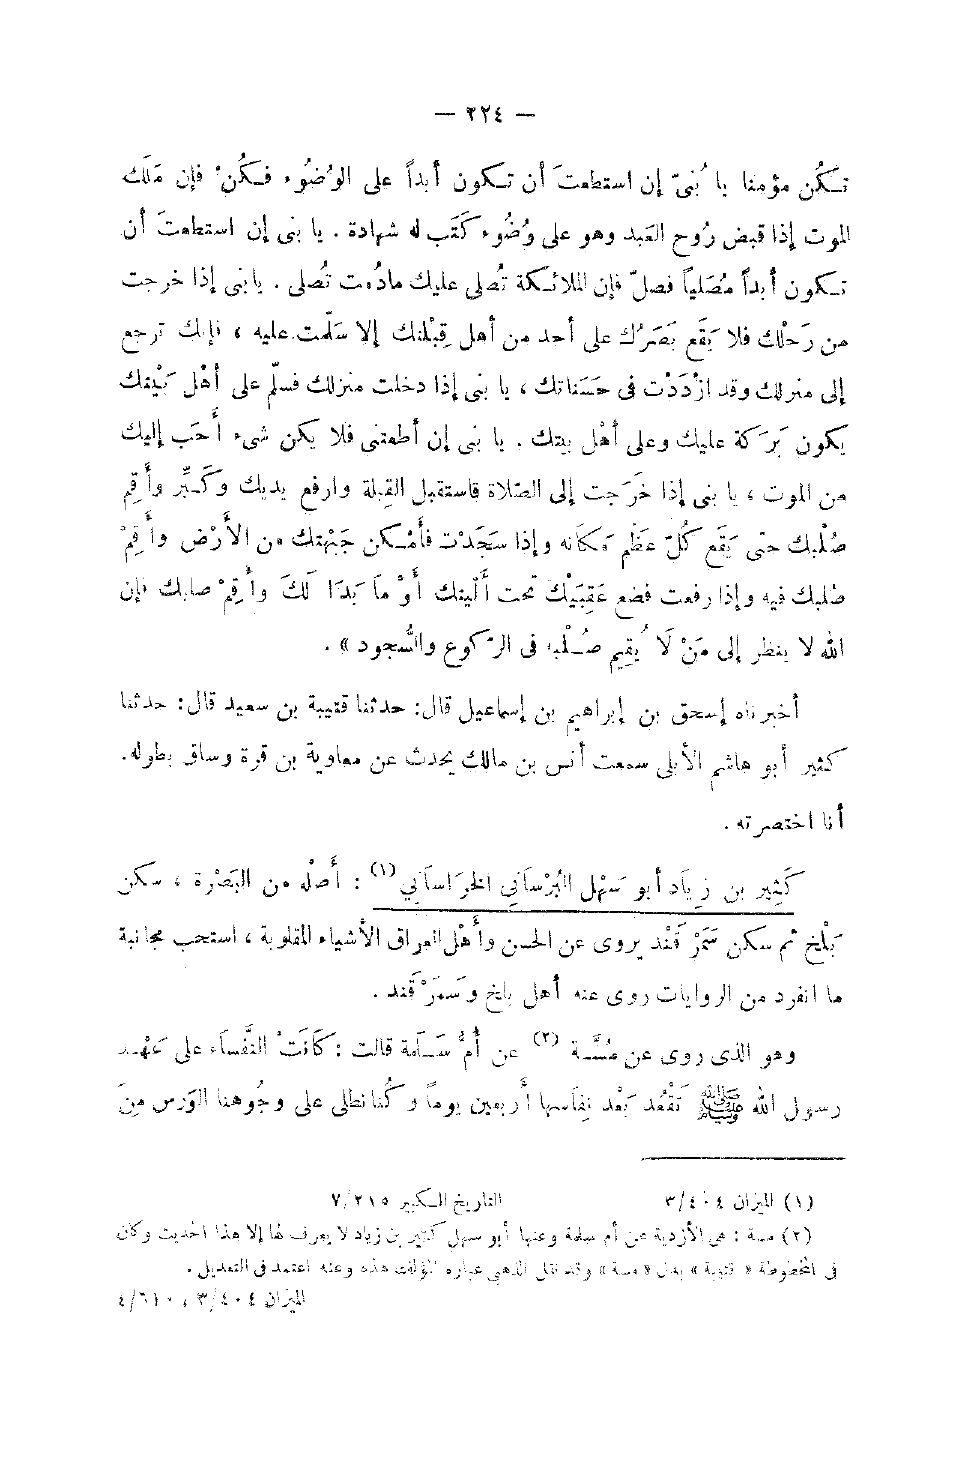 — ٢٢٤ —
تكُن مؤمنا يا بُنىّ إن استطعتَ أن تكون أبداً على الوُضُوء فكُنْ فإن مَلَك
الموت إذا قبض رُوح العَبد وهو على وُضُوء كَتَب له شهادة . يا بنى إن استطعتَ أن
تكون أبداً مُصَلياً فصلّ فإن الملائكة تُصلى عليك مادُمت تُصلى . يا بنى إذا خرجت
من رَحْلك فلا يَقَع بَصَرُك على أحد من أهل قِبْلتك إلا سَلَّمت عليه ، فإنك ترجع
إلى منزلك وقد ازْدَدْت فى حَسَناتك ، يا بنى إذا دخلت منزلك فسلّم على أهْل بَيْتك
يكون بَرَكة عليك وعلى أهْل بيتك . يا بنى إن أطعتنى فلا يكن شىء أحَب إليك
من الموت ، يا بنى إذا خَرَجت إلى الصّلاة فاستقبل القِبلة وارفع يديك وكَبِّر وأَقِم
صُلْبك حتى يَقَع كُلّ عظْم مَكانه وإذا سَجَدْت فأمْكن جَبْهتك من الأَرْض وأَقِمْ
صلبك فيه وإذا رفعت فضع عَقِبَيْك تحت أَلْيتك أَوْ مَا بَدَا لَكَ وأَقِمْ صلبك فإن
الله لا ينظر إلى مَنْ لَا يُقِيم صُلْبه فى الرّكوع والسُّجود » .
أخبرناه إسحق بن إبراهيم بن إسماعيل قال: حدثنا قتيبة بن سعيد قال: حدثنا
كثير أبو هاشم الأبلى سمعت أنس بن مالك يحدث عن معاوية بن قرة وساق بطوله.
أنا اختصرته .
كَثِير بن زياد أبو سَهْل البُرْسَانِي الخرَاسانِي (١) : أصْله من البَصْرة ، سكن
بَلْخ ثم سكن سَمَرْقَنْد يروى عن الحسن وأَهْل العراق الأشياء المقلوبة ، استحب مجانبة
ما انفرد من الروايات روى عنه أهل بلخ وسَمرْقَند .
وهو الذى روى عن مُسَّة (٢) عن أُمّ سَلَمة قالت : كَانَتْ النُّفساَء على عَهْد
رسول الله ﷺ تَقْعُد بَعْد نِفَاسها أربعين يوماً وكُنا نطلى على وجُوهنا الوَرس مِنَ
(١) الميزان ٣/٤٠٤ التاريخ الكبير ٧/٢١٥
(٢) مسة : هى الأزدية عن أم سلمة وعنها أبو سهل كثير بن زياد لا يعرف لها إلا هذا الحديث وكان
فى المخطوطة « » بدل « مسة » وقد نقل الذهبى عبارة المؤلف هذه وعنه اعتمد فى التعديل .
الميزان ٣/٤٠٤ ، ٤/٦١٠